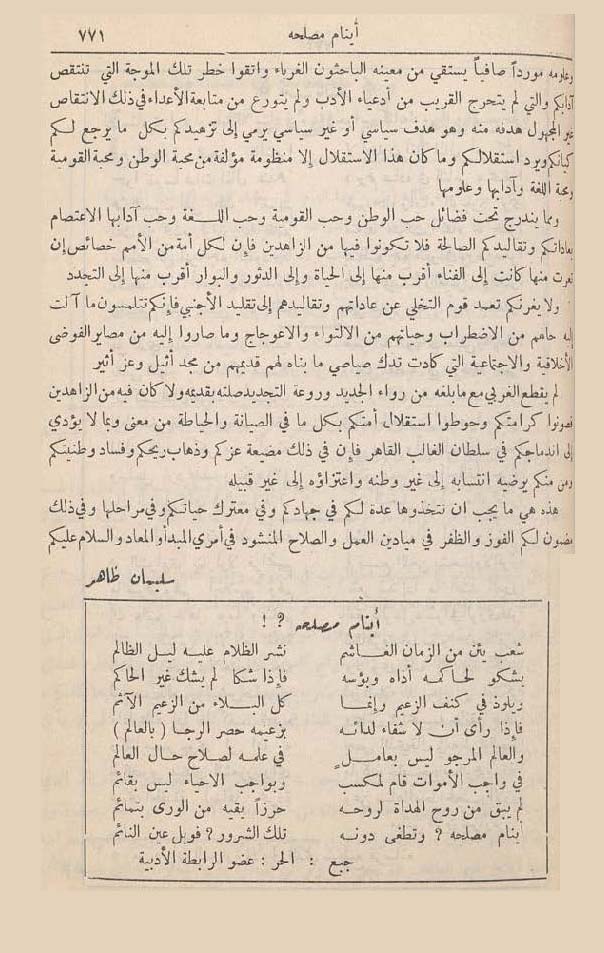 أينام مصلحه ٧٧١
وعلومه مورداً صافياً يستقي من معينه الباحثون الغرباء واتقوا خطر تلك الموجة التي تنتقص
آدابكم والتي لم يتحرج القريب من أدعياء الأدب ولم يتورع من متابعة الأعداء في ذلك الانتقاص
غير المجهول هدفه منه وهو هدف سياسي أو غير سياسي يرمي إلى تزهيدكم بكل ما يرجع لكم
كيانكم ويرد استقلالكم وما كان هذا الاستقلال إلا منظومة مؤلفة من محبة الوطن ومحبة القومية
ومحبة اللغة وآدابها وعلومها
ومما يندرج تحت فضائل حب الوطن وحب القومية وحب اللغة وحب آدابها الاعتصام
بعاداتكم وتقاليدكم الصالحة فلا تكونوا فيها من الزاهدين فإن لكل أمة من الأمم خصائص إن
تعرت منها كانت إلى الفناء أقرب منها إلى الحياة وإلى الدثور والبوار أقرب منها إلى التجدد
ولا يغرنكم تعمد قوم التخلي عن عاداتهم وتقاليدهم إلى تقليد الأجنبي فإنكم تتلمسون ما آلت
إليه حالهم من الاضطراب وحياتهم من الالتواء والاعوجاج وما صاروا إليه من مصاير الفوضى
الأخلاقية والاجتماعية التي كادت تدك صياصي ما بناه لهم قديمهم من مجد أثيل وعز أثير
لم يقطع الغربي مع ما بلغه من رواء الجديد وروعة التجديد صلته بقديمه ولا كان فيه من الزاهدين
فصونوا كرامتكم وحوطوا استقلال أمتكم بكل ما في الصيانة والحياطة من معنى وبما لا يؤدي
إلى اندماجكم في سلطان الغالب القاهر فإن في ذلك مضيعة عزكم وذهاب ريحكم وفساد وطنيتكم
ومن منكم يرضيه انتسابه إلى غير وطنه واعتزاؤه إلى غير قبيله
هذه هي ما يجب ان تتخذوها عدة لكم في جهادكم وفي معترك حياتكم وفي مراحلها وفي ذلك
مضمون لكم الفوز والظفر في ميادين العمل والصلاح المنشود في أمري المبدأ والمعاد والسلام عليكم
سليمان ظاهر
أينام مصلحه ? !
شعب يئن من الزمان الغاشم نشر الظلام عليه ليل الظالم
يشكو لحاكمه أذاه وبؤسه فإذا شكا لم يشك غير الحاكم
ويلوذ في كنف الزعيم وإنما كل البلاء من الزعيم الآثم
فإذا رأى أن لا شفاء لدائه بزعيمه حصر الرجا ( بالعالم )
والعالم المرجو ليس بعامل في علمه لصلاح حال العالم
في واجب الأموات قام لمكسب وبواجب الاحياء ليس بقائم
لم يبق من روح الهداة لروحه حرزاً بقيه من الورى بتمائم
أينام مصلحه ? وتطغى دونه تلك الشرور ? فويل عين النائم
جبع : الحر : عضو الرابطة الأدبية